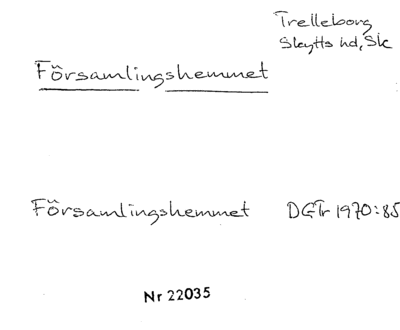 Trelleborg
Skytts hd, Sk
Församlingshemmet
Församlingshemmet DGTr 1970:85
Nr 22035